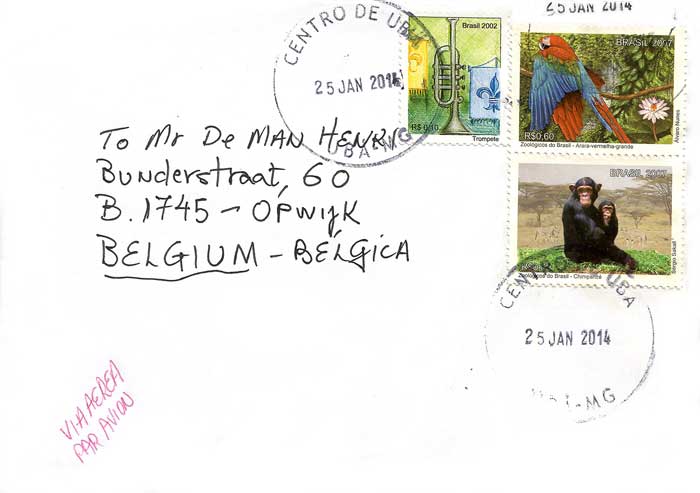 CENTRO DE UBÁ
25 JAN 2014
UBA-MG
Brasil 2002
R$ 0,10
Trompete
25 JAN 2014
BRASIL 2007
R$0,60
Zoológicos do Brasil - Arara-vermelha-grande
Álvaro Nunes
BRASIL 2007
Zoológicos do Brasil - Chimpanzé
Sérgio Sakall
To Mr De MAN HENRI
Bunderstraat, 60
B. 1745 - OPWIJK
BELGIUM - BÉLGICA
CENTRO DE UBA
25 JAN 2014
-MG
VIA AEREA
PAR AVION